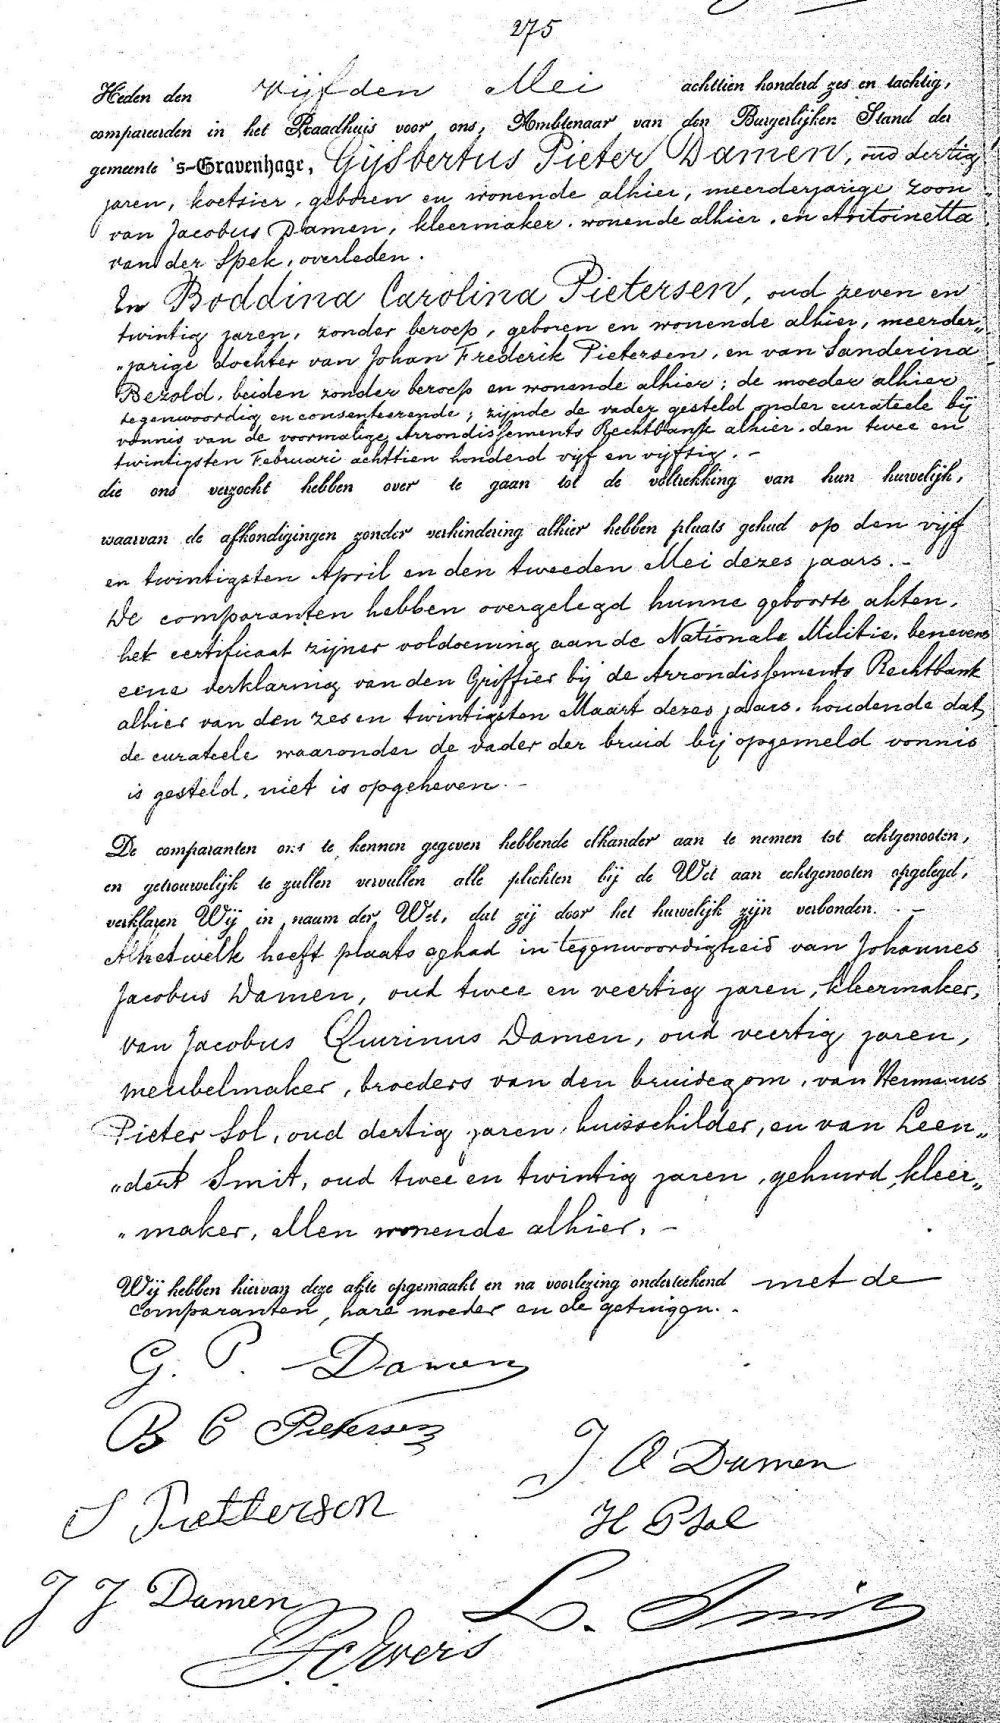 275
Heden den vijfden Mei achttien honderd zes en tachtig,
compareerden in het Raadhuis voor ons, Ambtenaar van den Burgerlijken Stand der
gemeente 's-Gravenhage, Gijsbertus Pieter Damen, oud dertig
jaren, koetsier, geboren en wonende alhier, meerderjarige zoon
van Jacobus Damen, kleermaker, wonende alhier, en Antoinetta
van der Spek, overleden.
En Boddina Carolina Pietersen, oud zeven en
twintig jaren, zonder beroep, geboren en wonende alhier, meerder„
„jarige dochter van Johan Frederik Pietersen, en van Sanderina
Bezold, beiden zonder beroep en wonende alhier; de moeder alhier
tegenwoordig en consenteerende; zijnde de vader gesteld onder curateele bij
vonnis van de voormalige Arrondissements Rechtbank alhier, den twee en
twintigsten Februari achttien honderd vijf en vijftig. -
die ons verzocht hebben over te gaan tot de voltrekking van hun huwelijk,
waarvan de afkondigingen zonder verhindering alhier hebben plaats gehad op den vijf
en twintigsten April en den tweeden Mei dezes jaars. -
De comparanten hebben overgelegd hunne geboorte akten,
het certificaat zijner voldoening aan de Nationale Militie, benevens
eene verklaring van den Griffier bij de Arrondissements Rechtbank
alhier van den zes en twintigsten Maart dezes jaars, houdende dat
de curateele waaronder de vader der bruid bij opgemeld vonnis
is gesteld, niet is opgeheven. -
De comparanten ons te kennen gegeven hebbende elkander aan te nemen tot echtgenooten,
en getrouwelijk te zullen vervullen alle plichten bij de Wet aan echtgenooten opgelegd,
verklaren Wij in naam der Wet, dat zij door het huwelijk zijn verbonden. -
Al hetwelk heeft plaats gehad in tegenwoordigheid van Johannes
Jacobus Damen, oud twee en veertig jaren, kleermaker,
van Jacobus Quirinus Damen, oud veertig jaren,
meubelmaker, broeders van den bruidegom, van Hermanus
Pieter Sol, oud dertig jaren, huisschilder, en van Leen„
„dert Smit, oud twee en twintig jaren, gehuurd, kleer„
„maker, allen wonende alhier. -
Wij hebben hiervan deze akte opgemaakt en na voorlezing onderteekend met de
comparanten, hare moeder en de getuigen. -
G. P. Damen
B C Pietersen
J Q Damen
S Pietterson
H P Sol
J J Damen
L. Smit